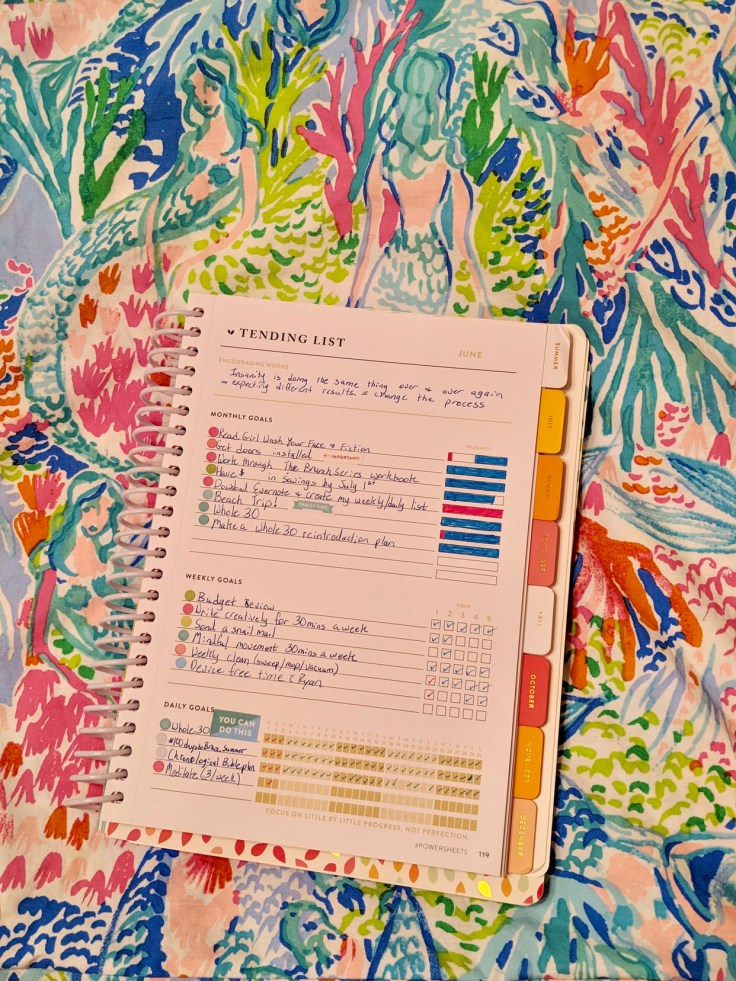 TENDING LIST
JUNE
ENCOURAGING WORDS
Insanity is doing the same thing over & over again
expecting different results. = change the process
MONTHLY GOALS
PROGRESS
Read Girl Wash Your Face & Fiction
Get doors installed ←IMPORTANT!
Work through The Brunch Series workbook
Have $ in Savings by July 1st
Download Evernote & create my weekly/daily list
Beach Trip!
Whole 30
Make a Whole 30 reintroduction plan
WEEKLY GOALS
WEEK
1 2 3 4 5
Budget Review
Write creatively for 30 mins a week
Send a snail mail
Mindful movement 30 mins a week
Weekly clean (sweep/mop/vacuum)
Device free time c̄ Ryan
DAILY GOALS
YOU CAN
DO THIS
Whole 30
#100daystoBraveSummer
Chronological Bible plan
Meditate (3/week)
FOCUS ON LITTLE BY LITTLE PROGRESS, NOT PERFECTION.
#POWERSHEETS 119
SUMMER
JULY
FALL
OCTOBER
NOVEMBER
DECEMBER